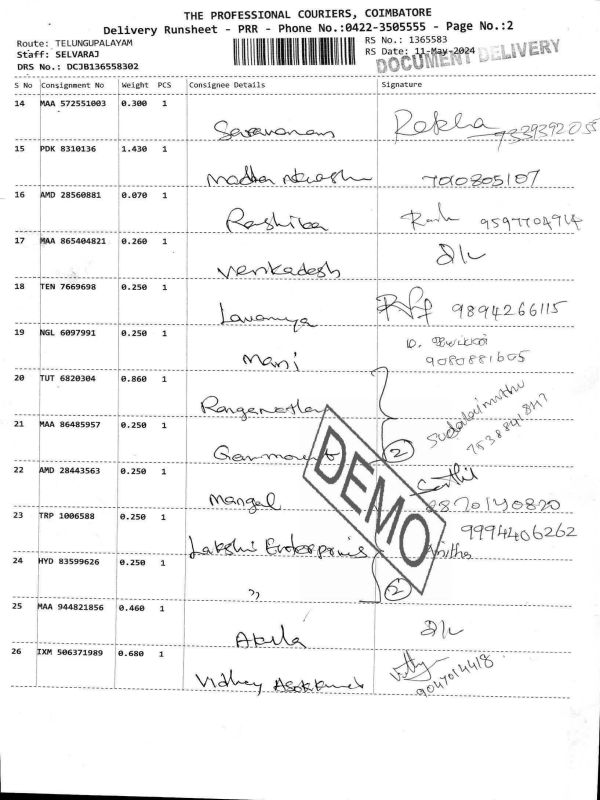 THE PROFESSIONAL COURIERS, COIMBATORE
Delivery Runsheet - PRR - Phone No.:0422-3505555 - Page No.:2
Route: TELUNGUPALAYAM
Staff: SELVARAJ
DRS No.: DCJB136558302
RS No.: 1365583
RS Date: 11-May-2024
DOCUMENT DELIVERY
S No Consignment No Weight PCS Consignee Details Signature
14 MAA 572551003 0.300 1
Saravanan Rekha 7339392055
15 PDK 8310136 1.430 1
7010805107
16 AMD 28560881 0.070 1
Rashika 9597704914
17 MAA 865404821 0.260 1
Venkadesh D/L
18 TEN 7669698 0.250 1
Lavanya 9894266115
19 NGL 6097991 0.250 1
Mani 9080881605
20 TUT 6820304 0.860 1
Ranganathan Sudalaimuthu
7538841847
21 MAA 86485957 0.250 1
2
22 AMD 28443563 0.250 1
Mangal Senthil
8870140820
23 TRP 1006588 0.250 1
9994406262
Lakshmi Enterprises Anitha
24 HYD 83599626 0.250 1
" 2
25 MAA 944821856 0.460 1
Akila D/L
26 IXM 506371989 0.680 1
Vidhey Asokkumar 9047014418
DEMO